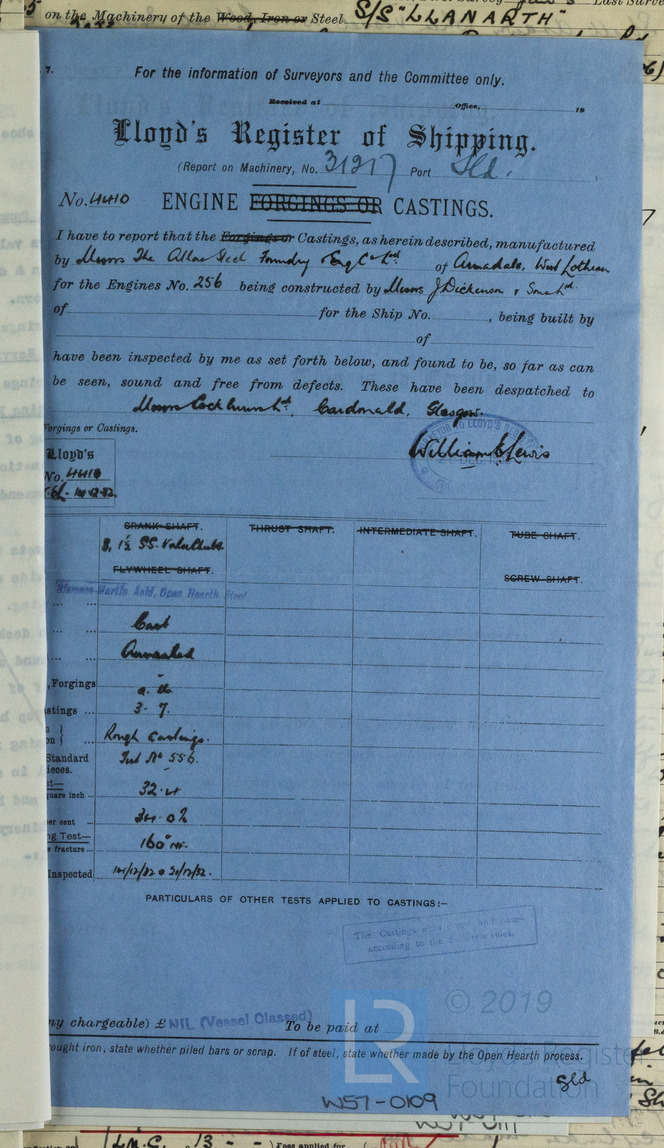 on the Machinery of the Wood, Iron or Steel S/S "LLANARTH"
7.
For the information of Surveyors and the Committee only.
Received at Office, 19
Lloyd's Register of Shipping.
(Report on Machinery, No. 31217 Port Sld.
No. 4410 ENGINE FORGINGS OR CASTINGS.
I have to report that the Forgings or Castings, as herein described, manufactured
by Messrs The Atlas Steel Foundry & Eng Co Ltd of Armadale, West Lothian
for the Engines No. 256 being constructed by Messrs J Dickinson & Sons Ltd.
of for the Ship No. , being built by
of
have been inspected by me as set forth below, and found to be, so far as can
be seen, sound and free from defects. These have been despatched to
Messrs Cockburns Ltd, Cardonald, Glasgow.
Forgings or Castings.
William E Lewis
Lloyd's
No. 4410
14.12.32.
CRANK SHAFT. THRUST SHAFT. INTERMEDIATE SHAFT. TUBE SHAFT.
8, 1½ SS. Valve Chests.
FLYWHEEL SHAFT. SCREW SHAFT.
Siemens-Martin Acid, Open Hearth Steel
Cast
Annealed
, Forgings
astings ... 3 - 7.
Rough Castings.
Standard Test No 556.
ieces.
uare inch 32.4
per cent 34.0%
ng Test—
fracture 160°
Inspected 14/12/32 & 21/12/32.
PARTICULARS OF OTHER TESTS APPLIED TO CASTINGS:—
The Castings
according to the
ny chargeable) £ NIL (Vessel Classed) To be paid at
rought iron, state whether piled bars or scrap. If of steel, state whether made by the Open Hearth process.
Sld
© 2019
LR
Lloyd's Register
Foundation
W57-0109
L.M.C. 13 - - Fees applied for